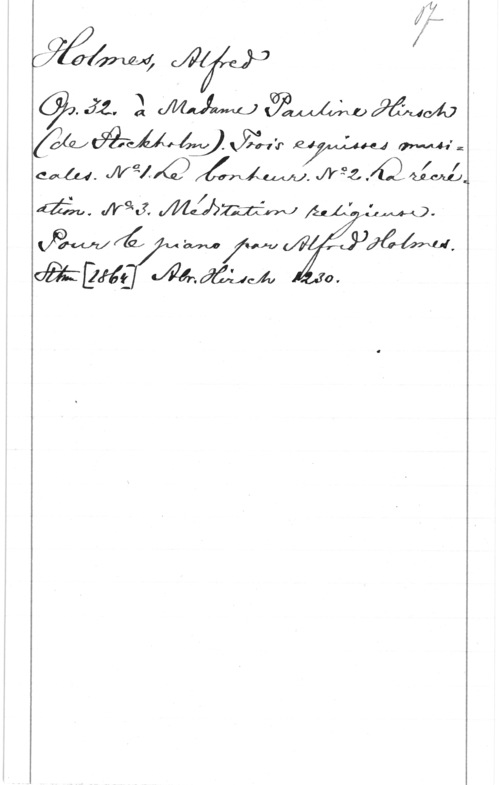 Holmes, Alfred
Op. 32. à Madame Pauline Hirsch
(de Stockholm). Trois esquisses musi=
cales. Nº1. Le bonheur. Nº2. La récré=
ation. Nº3. Méditation religieuse.
Pour le piano par Alfred Holmes.
Sthm Abr. Hirsch